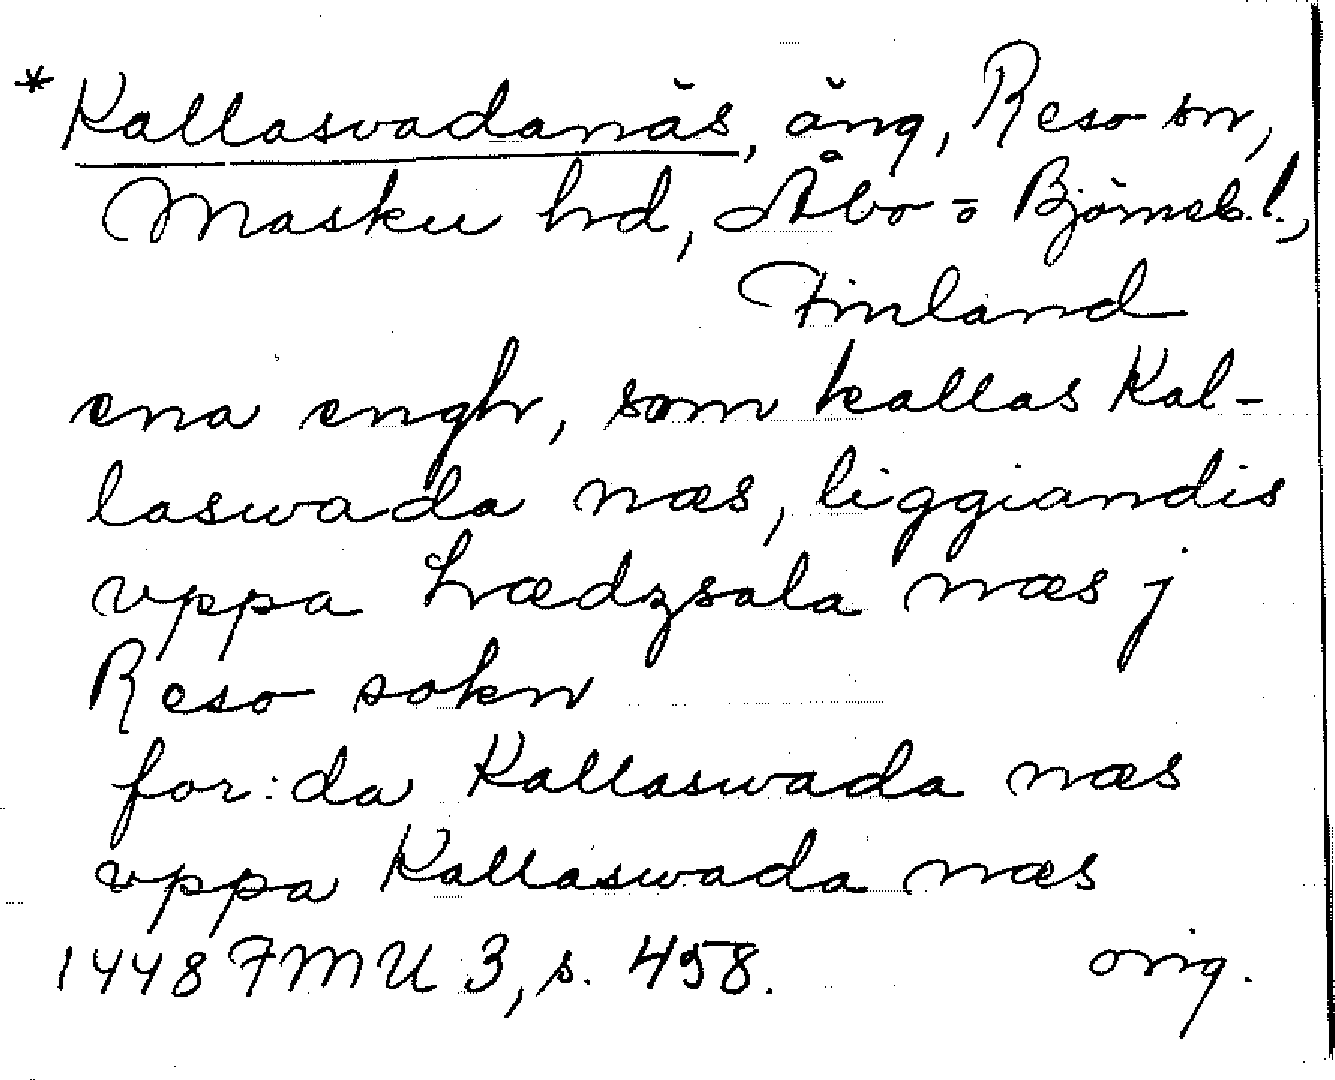 * Kallasvadanäs, äng, Reso sn,
Masku hd, Åbo- o Björneb. l.,
Finland
ena engh, som kallas Kal-
laswada næs, liggiandis
vppa hrædzsala næs j
Reso sokn
for:da Kallaswada næs
vppa Kallaswada næs
1448 FMU 3, s. 458. orig.